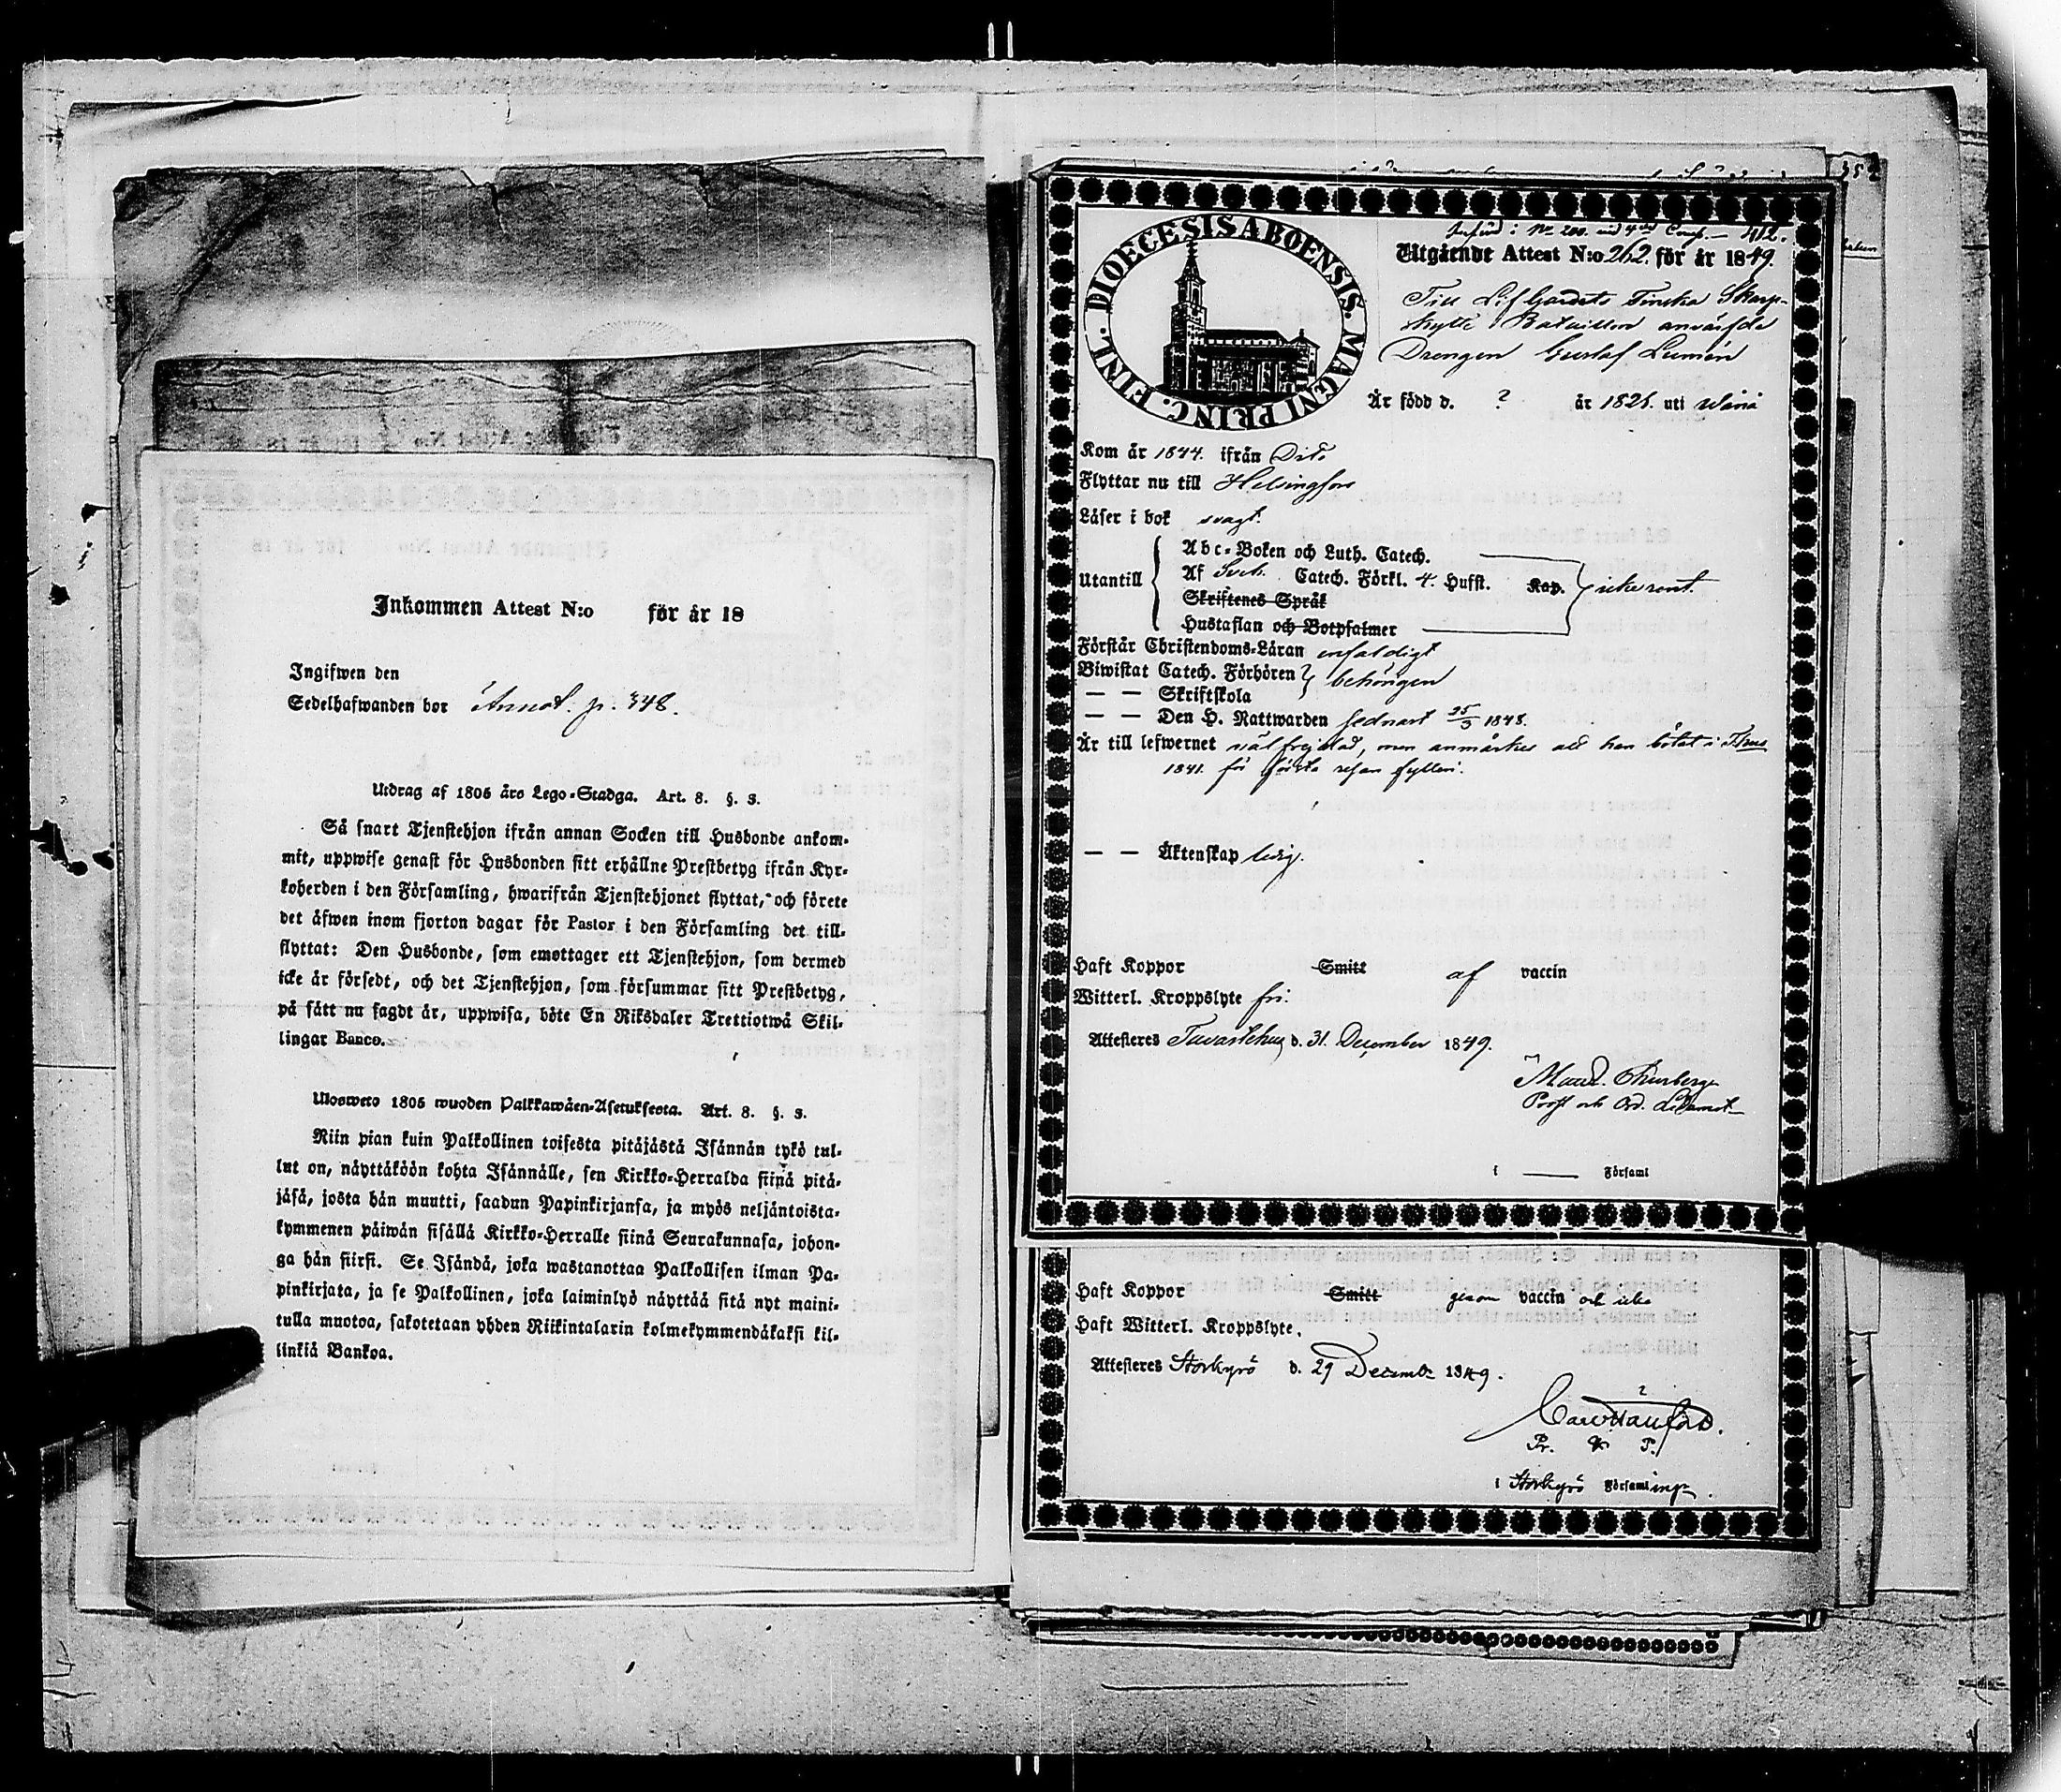 Inkommen Attest N:o för år 18
Ingifwen den
Sedelhafwanden bor Annot. p. 348.
Utdrag af 1805 års Lego-Stadga. Art. 8. §. 3.
Så snart Tjenstehjon ifrån annan Socken till Husbonde ankom-
mit, uppwise genast för Husbonden sitt erhållne Prestbetyg ifrån Kyr-
koherden i den Församling, hwarifrån Tjenstehjonet flyttat, och förete
det äfwen inom fjorton dagar för Pastor i den Församling det till-
flyttat: Den Husbonde, som emottager ett Tjenstehjon, som dermed
icke är försedt, och det Tjenstehjon, som försummar sitt Prestbetyg,
på sätt nu sagdt är, uppwisa, böte En Riksdaler Trettiotwå Skil-
lingar Banco.
Ulosweto 1805 wuoden Palkkawäen-Asetuksesta. Art. 8. §. 3.
Niin pian kuin Palkollinen toisesta pitäjästä Isännän tykö tul-
lut on, näyttäköön kohta Isännälle, sen Kirkko-Herralda siinä pitä-
jäsä, josta hän muutti, saadun Papinkirjansa, ja myös neljäntoista-
kymmenen päiwän sisällä Kirkko-Herralle siinä Seurakunnasa, johon-
ga hän siirsi. Se Isändä, joka wastanottaa Palkollisen ilman Pa-
pinkirjata, ja se Palkollinen, joka laiminlyö näyttää sitä nyt maini-
tulla muotoa, sakotetaan yhden Riikintalarin kolmekymmendäkaksi kil-
linkiä Bankoa.
DIOECESIS ABOENSIS. MAGNI PRINC. FINL.
N:o 200. vid 4:de Comp. 412.
Utgående Attest N:o 262. för år 1849.
Till Lif Gardets Finska Skarp-
skytte Bataillon anwärfde
Drengen Gustaf Lumén
Är född d. ? år 1825. uti Wånå
Kom år 1844. ifrån Dito
Flyttar nu till Helsingfors
Läser i bok svagt.
Utantill
Abc-Boken och Luth. Catech.
Af Sveb. Catech. Förkl. 4. Hufst. Kap. icke rent.
Skriftenes Språk
Hustaflan och Botpsalmer
Förstår Christendoms-Läran enfaldigt
Biwistat Catech. Förhören behörigen
— — Skriftskola
— — Den H. Nattwarden sednast 25/3 1848.
Är till lefwernet väl frejdad, men anmärkes att han bötat i Thus
1841. för första resan fylleri.
— — Äktenskap ledig.
Haft Koppor Smitt af vaccin
Witterl. Kroppslyte fri.
Attesteres Tavastehus d. 31. December 1849.
Maur. Thurberg
Prost och Ord. Ledamot
i — Församl
Haft Koppor Smitt genom vaccin och icke
Haft Witterl. Kroppslyte.
Attesteres Storkyrö d. 29 Decemb. 1849.
Pr. V. P.
i Storkyrö Församling.